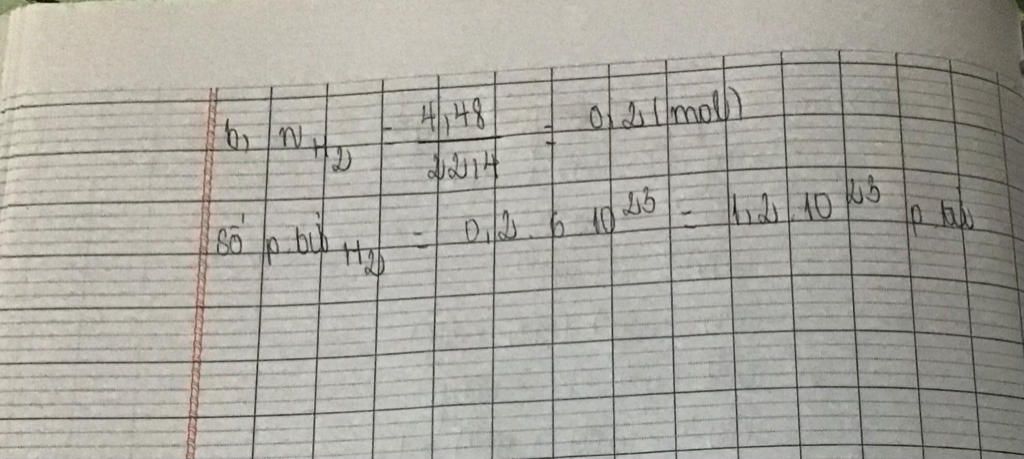 b, n H2 = 4,48 / 22,4 = 0,2 (mol)
số p.tử H2 = 0,2 . 6 . 10^23 = 1,2 . 10^23 p.tử